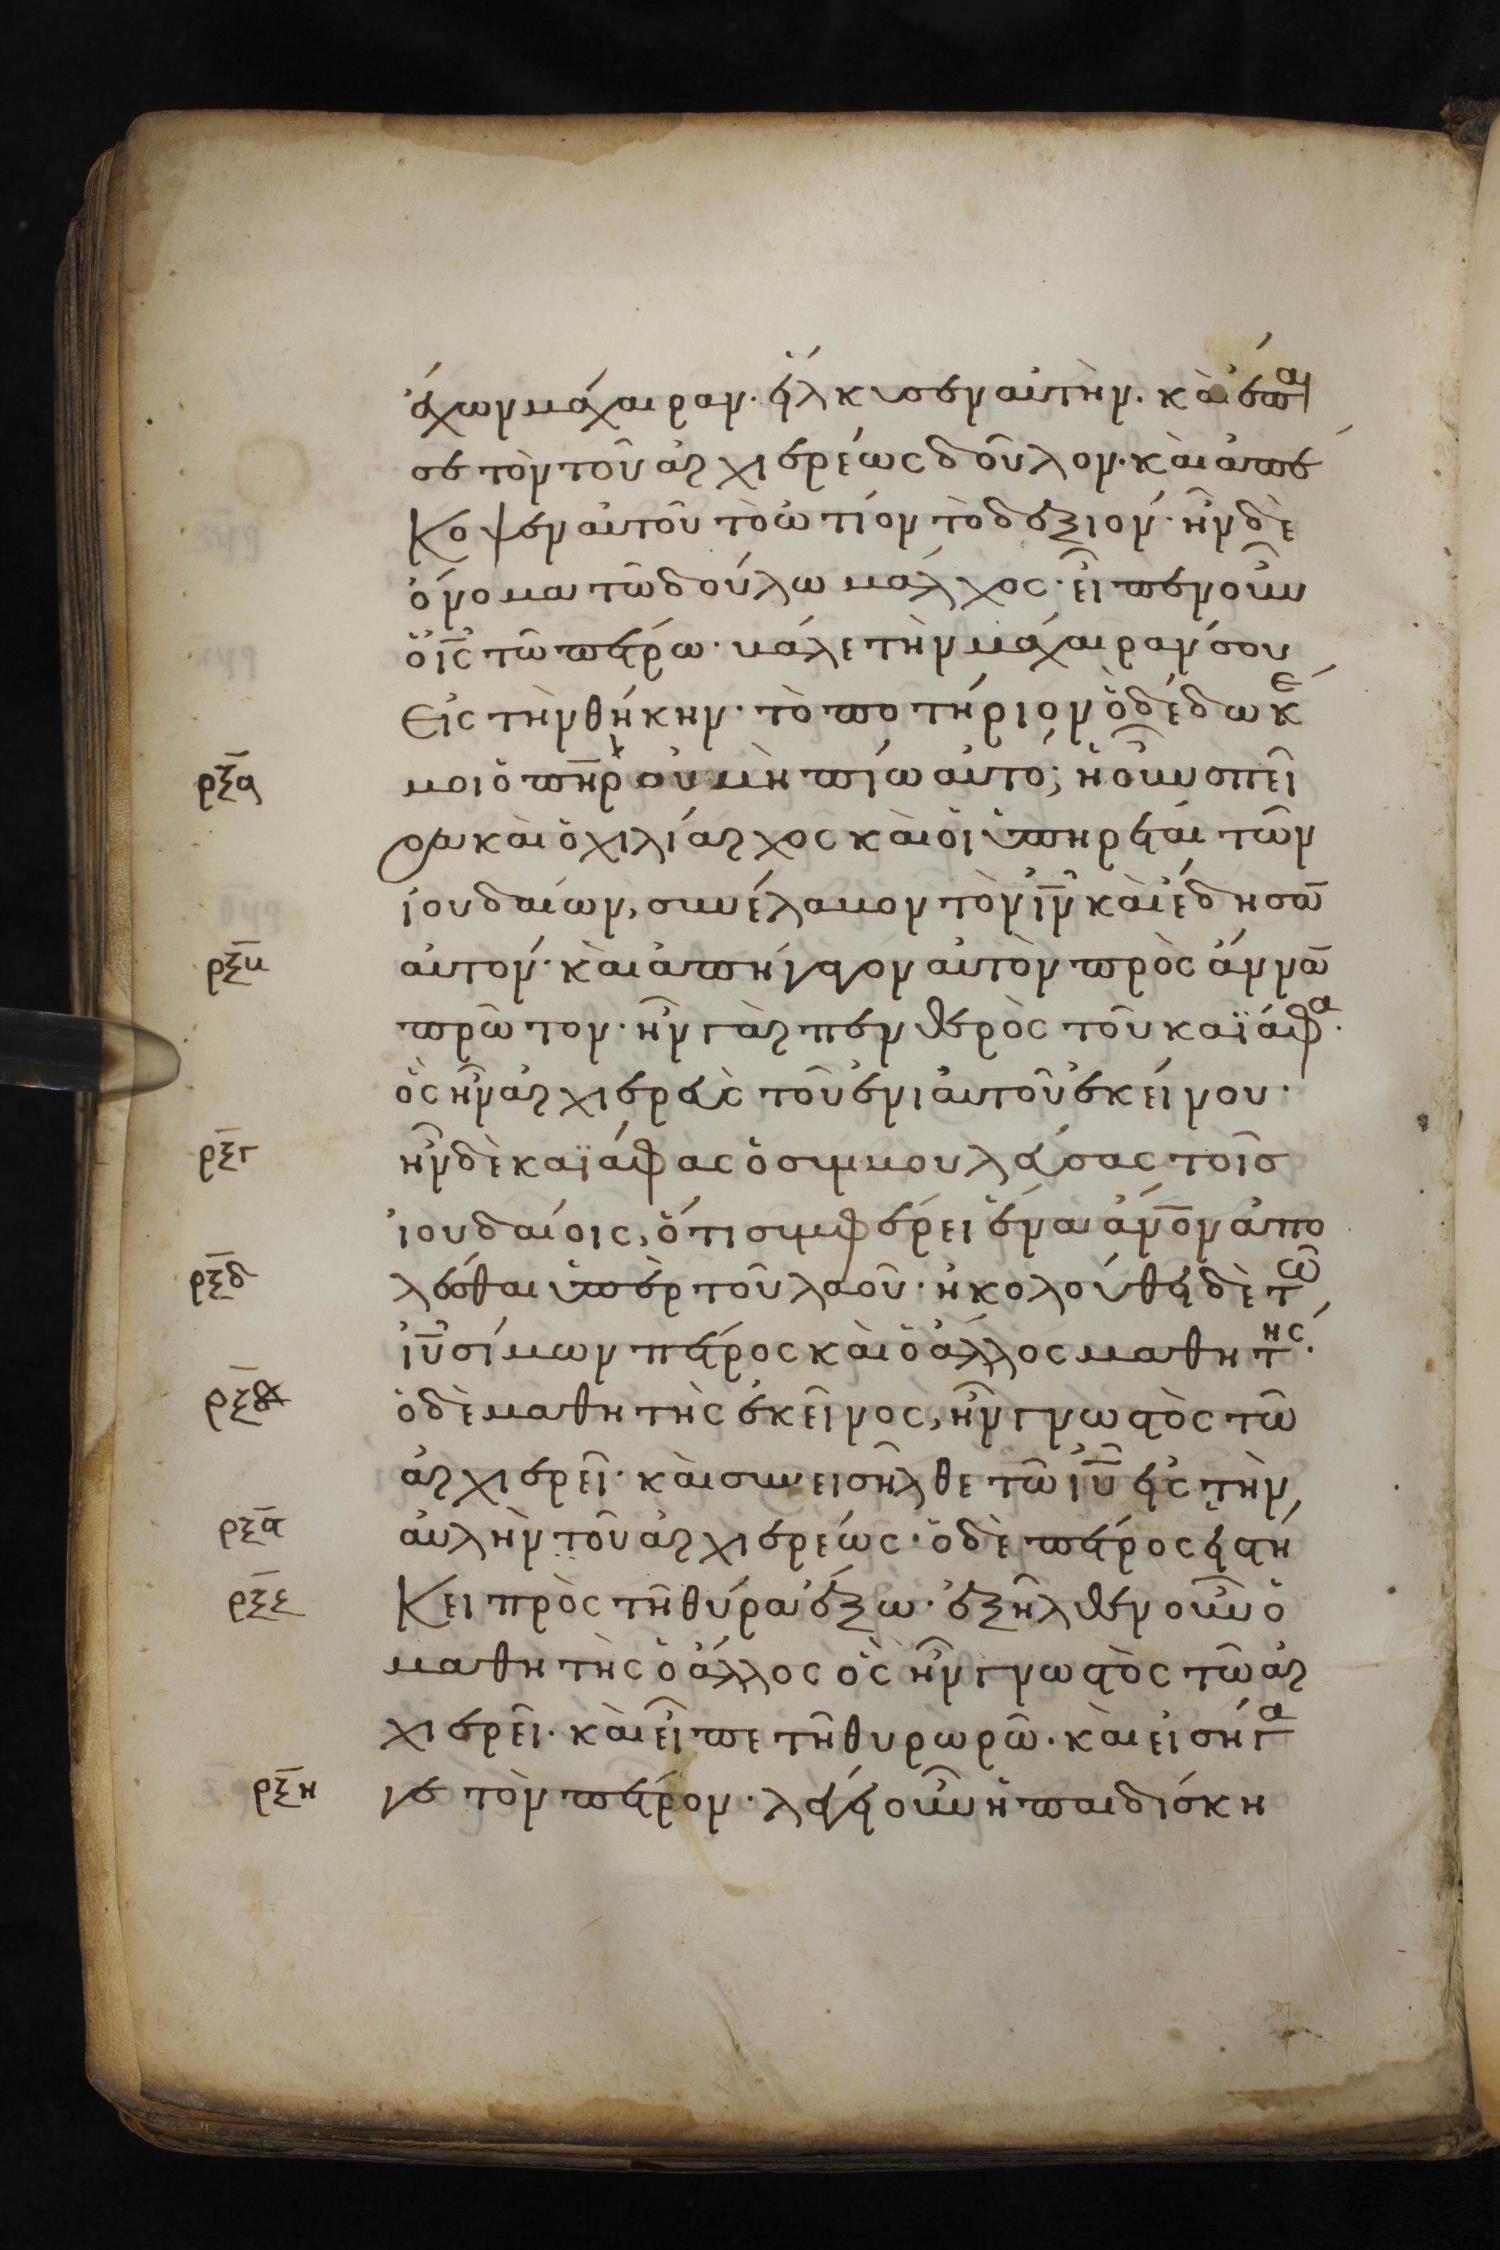 ἔχων μάχαιραν· εἵλκυσεν αὐτήν· καὶ ἔπαι
σε τὸν τοῦ ἀρχιερέως δοῦλον· καὶ ἀπέ
κοψεν αὐτοῦ τὸ ὠτίον τὸ δεξιόν· ἦν δὲ
ὄνομα τῶ δούλω μάλχος· εἶπεν οὖν
ὁ ι̅ς̅ τῶ πέτρω· βάλε τὴν μάχαιράν σου
εἰς τὴν θήκην· τὸ ποτήριον ὃ δέδωκέ
ρξα μοι ὁ π̅η̅ρ̅ οὐ μὴ πίω αὐτό; ἡ οὖν σπεῖ
ρα καὶ ὁ χιλίαρχος καὶ οἱ ὑπηρέται τῶν
ἰουδαίων, συνέλαβον τὸν ι̅ν̅ καὶ ἔδησα̅
ρξβ αὐτόν· καὶ ἀπήγαγον αὐτὸν πρὸς ἄννα̅
πρῶτον· ἦν γὰρ πενθερὸς τοῦ καϊάφα·
ὃς ἦν ἀρχιερεὺς τοῦ ἐνιαυτοῦ ἐκείνου·
ρξγ ἦν δὲ καϊάφας ὁ συμβουλεύσας τοῖς
ἰουδαίοις, ὅτι συμφέρει ἕνα α̅ν̅ο̅ν ἀπο
ρξδ λέσθαι ὑπὲρ τοῦ λαοῦ· ἠκολούθει δὲ τῶ
ι̅υ̅ σίμων πέτρος καὶ ὁ ἄλλος μαθητής·
ρξδ ὁ δὲ μαθητὴς ἐκεῖνος, ἦν γνωστὸς τῶ
ἀρχιερεῖ· καὶ συνεισῆλθε τῶ ι̅υ̅ εἰς τὴν
ρξα αὐλὴν τοῦ ἀρχιερέως· ὁ δὲ πέτρος εἱστή
ρξε κει πρὸς τῆ θύρα ἔξω· ἐξῆλθεν οὖν ὁ
μαθητὴς ὁ ἄλλος ὃς ἦν γνωστὸς τῶ ἀρ
χιερεῖ· καὶ εἶπε τῆ θυρωρῶ· καὶ εἰσήγα
ρξη γε τὸν πέτρον· λέγει οὖν ἡ παιδίσκη